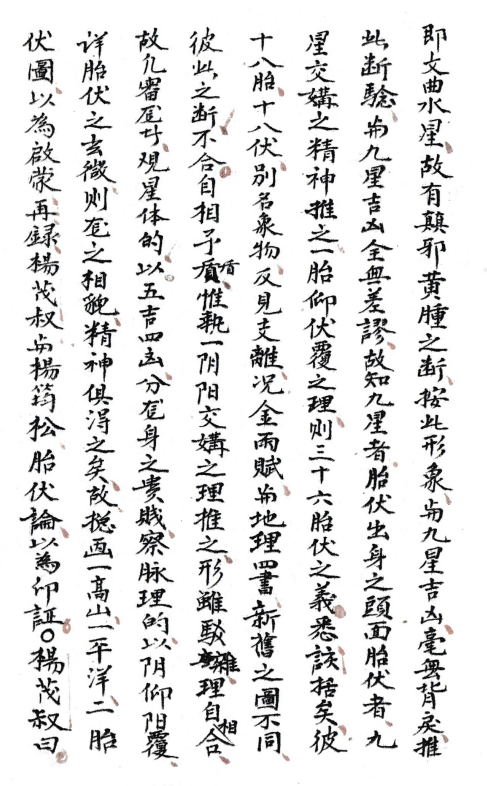 即文曲水星故有顛邪黄腫之断按此形象与九星吉凶毫無背戾推
此断驗与九星吉凶全無差謬故知九星者胎伏出身之頭面胎伏者九
星交媾之精神推之一胎仰伏覆之理則三十六胎伏之義悉該括矣彼
十八胎十八伏別名象物反見支離况金雨賦与地理四書新舊之圖不同
彼此之断不合自相予盾惟執一阴阳交媾之理推之形雖駁雜理自相合
故凡審龍々观星体的以五吉四凶分龍身之貴賎察脉理的以阴仰阳覆
详胎伏之玄微則龍之相貌精神俱得之矣故摠画一高山一平洋二胎
伏圖以為啟蒙再録楊茂叔与楊筠松胎伏論以為印証〇楊茂叔曰